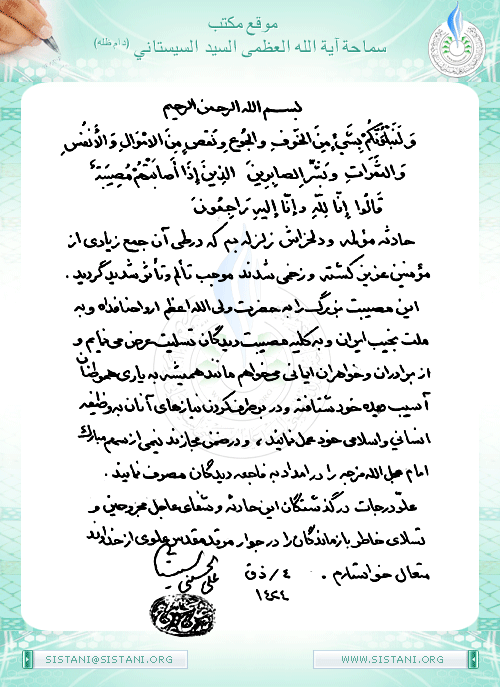 موقع مكتب
سماحة آية الله العظمى السيد السيستاني (دام ظله)
بسم الله الرحمن الرحیم
وَلَنَبْلُوَنَّكُمْ بِشَيْءٍ مِنَ الْخَوْفِ وَالْجُوعِ وَنَقْصٍ مِنَ الْأَمْوَالِ وَالْأَنْفُسِ
وَالثَّمَرَاتِ وَبَشِّرِ الصَّابِرِينَ الَّذِينَ إِذَا أَصَابَتْهُمْ مُصِيبَةٌ
قَالُوا إِنَّا لِلّٰهِ وَإِنَّا إِلَيْهِ رَاجِعُونَ
حادثه مؤلمه و دلخراش زلزله بم که در طی آن جمع زیادی از
مؤمنین عزیز کشته و زخمی شدند موجب تألم و تأثر شدید گردید .
این مصیبت بزرگ را به حضرت ولی الله اعظم ارواحنا فداه و به
ملت نجیب ایران و به کلیه مصیبت دیدگان تسلیت عرض می نمایم و
از برادران و خواهران ایمانی می خواهم مانند همیشه به یاری هموطنان
آسیب دیده خود شتافته و در برطرف کردن نیازهای آنان به وظیفه
انسانی و اسلامی خود عمل نمایند ، و در ضمن مجازند نیمی از سهم مبارک
امام عجل الله فرجه را در امداد به فاجعه دیدگان مصرف نمایند .
علو درجات درگذشتگان این حادثه و شفای عاجل مجروحین و
تسلای خاطر بازماندگان را در جوار مرقد مقدس علوی از خداوند
متعال خواستارم . ٤ / ذق
١٤٢٤
علی الحسینی السیستانی
SISTANI@SISTANI.ORG
WWW.SISTANI.ORG